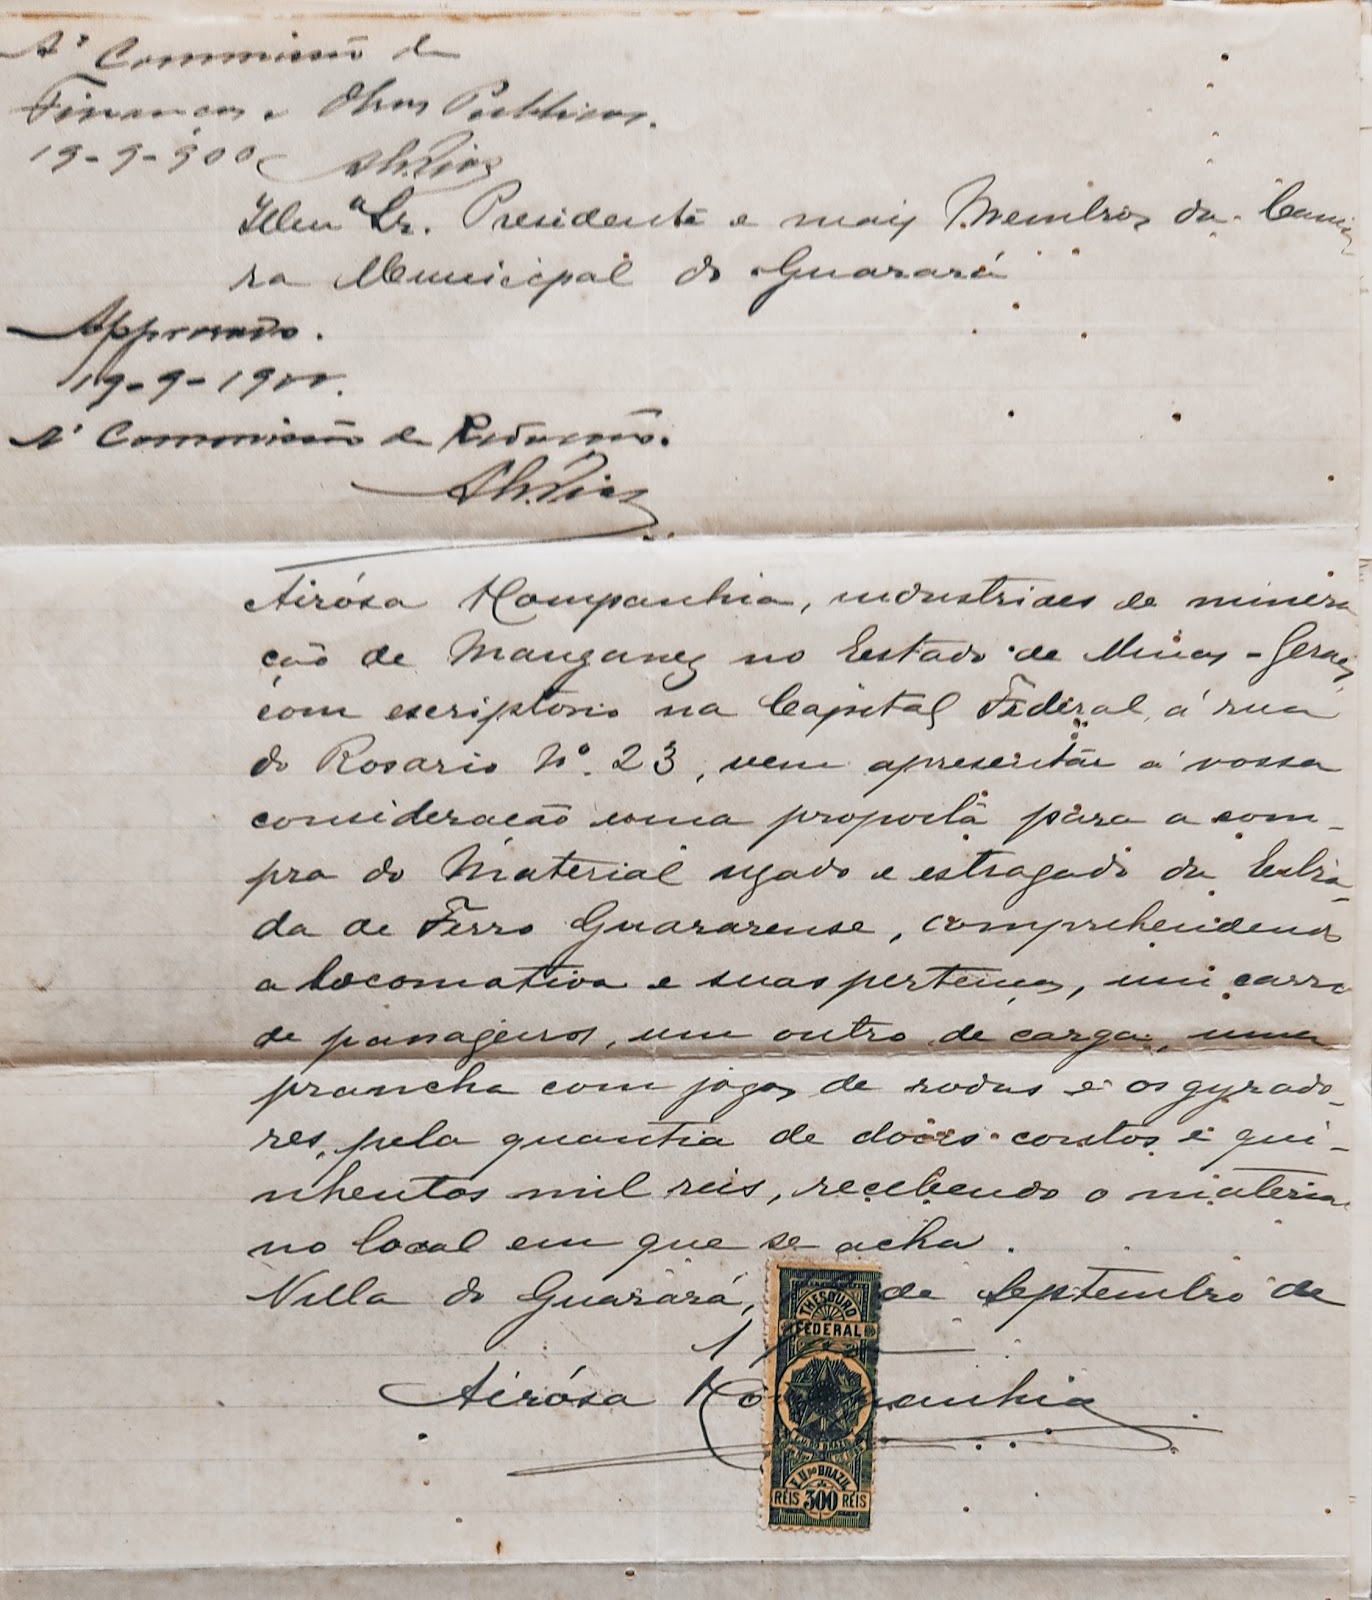 A' Commissão de
Finanças e Obras Publicas.
19-9-900
Illmº Sr. Presidente e mais Membros da Cama
ra Municipal do Guarará
Approvado.
19-9-1900.
A' Commissão de Redacção.
Airósa & Companhia, industriaes de minera
ção de Manganez no Estado de Minas-Geraes,
com escriptorio na Capital Federal, á rua
do Rosario Nº. 23, vem apresentar á vossa
consideração uma proposta para a com-
pra do Material uzado e estragado da Estra-
da de Ferro Guararense, comprehendendo
a locomotiva e suas pertenças, um carro
de passageiros, um outro de carga, uma
prancha com jogos de rodas e os gyrado-
res, pela quantia de dois contos e qui-
nhentos mil reis, recebendo o material
no local em que se acha.
Villa do Guarará, de Septembro de
Airósa & Companhia
THESOURO
FEDERAL
E.U. DO BRAZIL
RÉIS 300 RÉIS